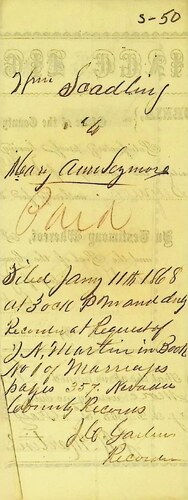 3-50
Wm Scadling
&
Mary Ann Seymore
Paid
Filed Jany 11th 1868
at 3 ock P M and duly
Recorded at Request of
J. N. Martin in Book
No 1 of Marriages
pages 357. Nevada
County Records
Recorder